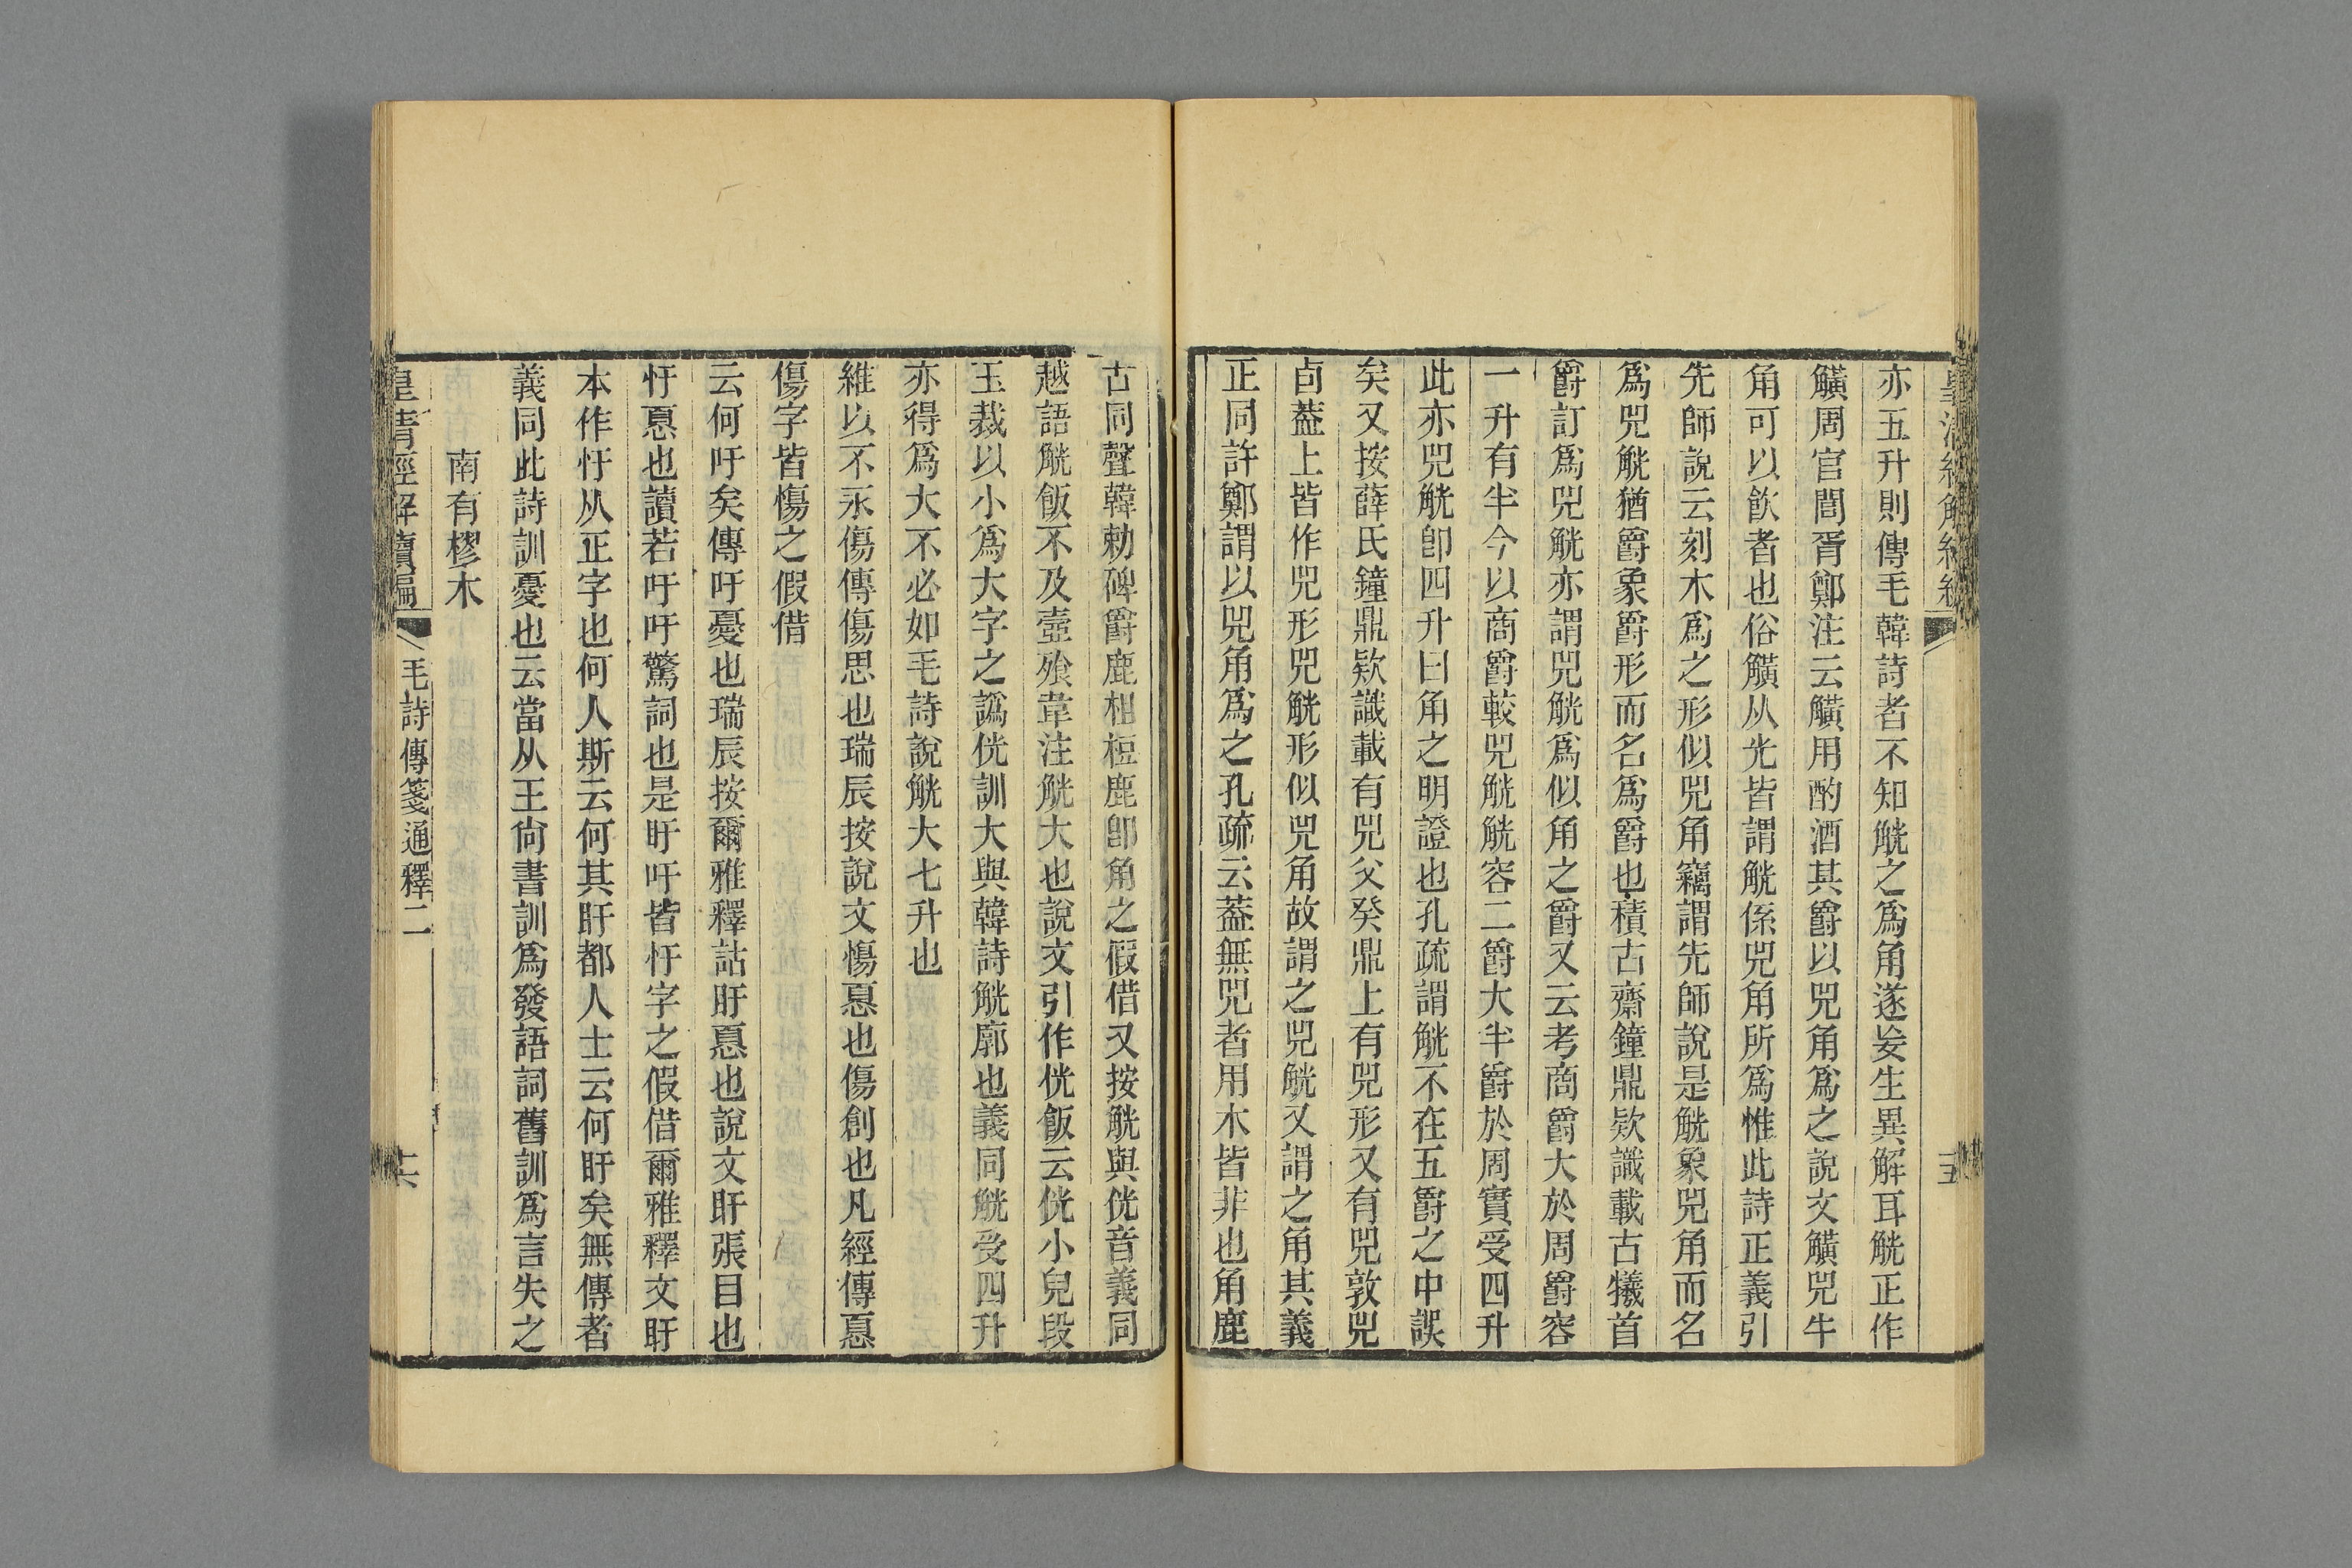 亦五升則傳毛韓詩者不知觥之爲角遂妄生異解耳觥正作
觵周官閭胥鄭注云觵用酌酒其爵以兕角爲之說文觵兕牛
角可以飮者也俗觵从光皆謂觥係兕角所爲惟此詩正義引
先師說云刻木爲之形似兕角竊謂先師說是觥象兕角而名
爲兕觥猶爵象爵形而名爲爵也積古齋鐘鼎欵識載古犧首
爵訂爲兕觥亦謂兕觥爲似角之爵又云考商爵大於周爵容
一升有半今以商爵較兕觥觥容二爵大半爵於周實受四升
此亦兕觥卽四升曰角之明證也孔疏謂觥不在五爵之中誤
矣又按薛氏鐘鼎欵識載有兕父癸鼎上有兕形又有兕敦兕
卣葢上皆作兕形兕觥形似兕角故謂之兕觥又謂之角其義
正同許鄭謂以兕角爲之孔疏云葢無兕者用木皆非也角鹿
古同聲韓勅碑爵鹿柤桓鹿卽角之假借又按觥與侊音義同
越語觥飯不及壺飱韋注觥大也說文引作侊飯云侊小兒段
玉裁以小爲大字之譌侊訓大與韓詩觥廓也義同觥受四升
亦得爲大不必如毛詩說觥大七升也
維以不永傷傳傷思也瑞辰按說文慯惪也傷創也凡經傳惪
傷字皆慯之假借
云何吁矣傳吁憂也瑞辰按爾雅釋詁盱惪也說文盱張目也
忓惪也讀若吁吁驚詞也是盱吁皆忓字之假借爾雅釋文盱
本作忓从正字也何人斯云何其盱都人士云何盱矣無傳者
義同此詩訓憂也云當从王尙書訓爲發語詞舊訓爲言失之
南有樛木
皇清經解續編 毛詩傳箋通釋二 十六